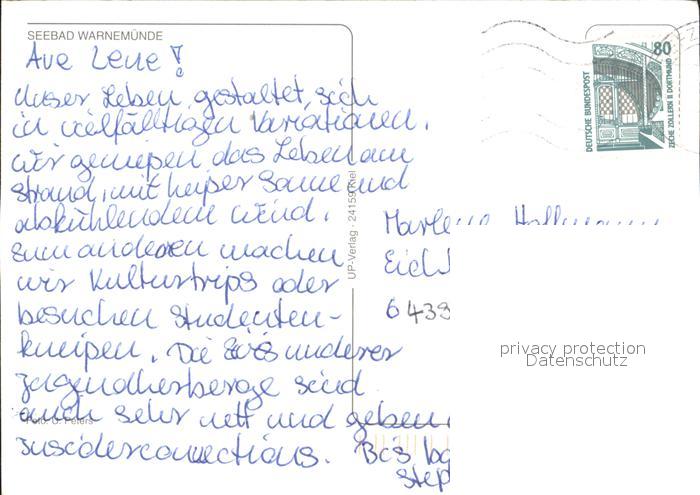 SEEBAD WARNEMÜNDE
Ave Lene!
Unser Leben gestaltet sich
in vielfältigen Variationen.
Wir genießen das Leben am
Strand, mit heißer Sonne und
abkühlendem Wind.
Zum anderen machen
wir Kulturtrips oder
besuchen Studenten-
kneipen. Die unserer
Jugendherberge sind
auch sehr nett und geben
Insiderconnections.
Bcs
Step
UP-Verlag · 24159 Kiel
Foto: G. Peters
80
DEUTSCHE BUNDESPOST
ZECHE ZOLLERN II DORTMUND
Eich
6439
privacy protection
Datenschutz